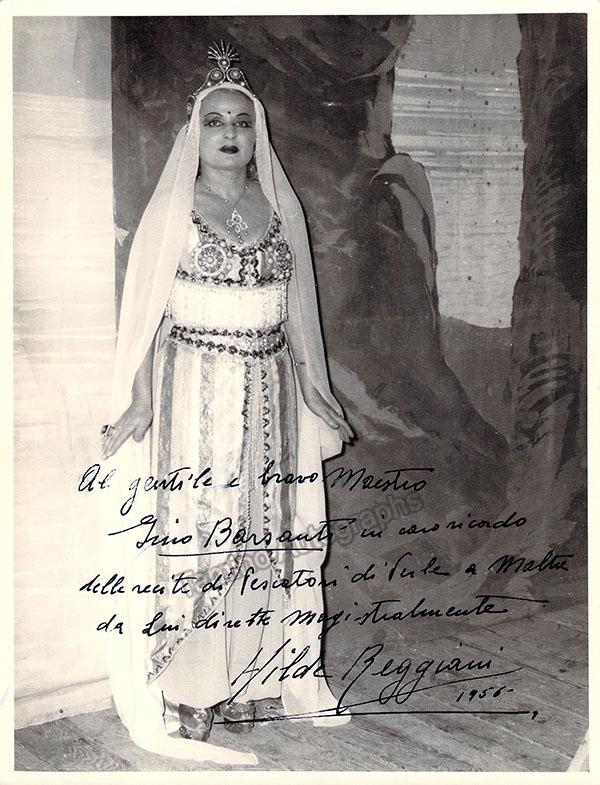 Al gentile e bravo Maestro
Gino Barsanti in caro ricordo
delle recite di Pescatori di Perle a Malta
da Lui dirette magistralmente
Hilde Reggiani
1956-